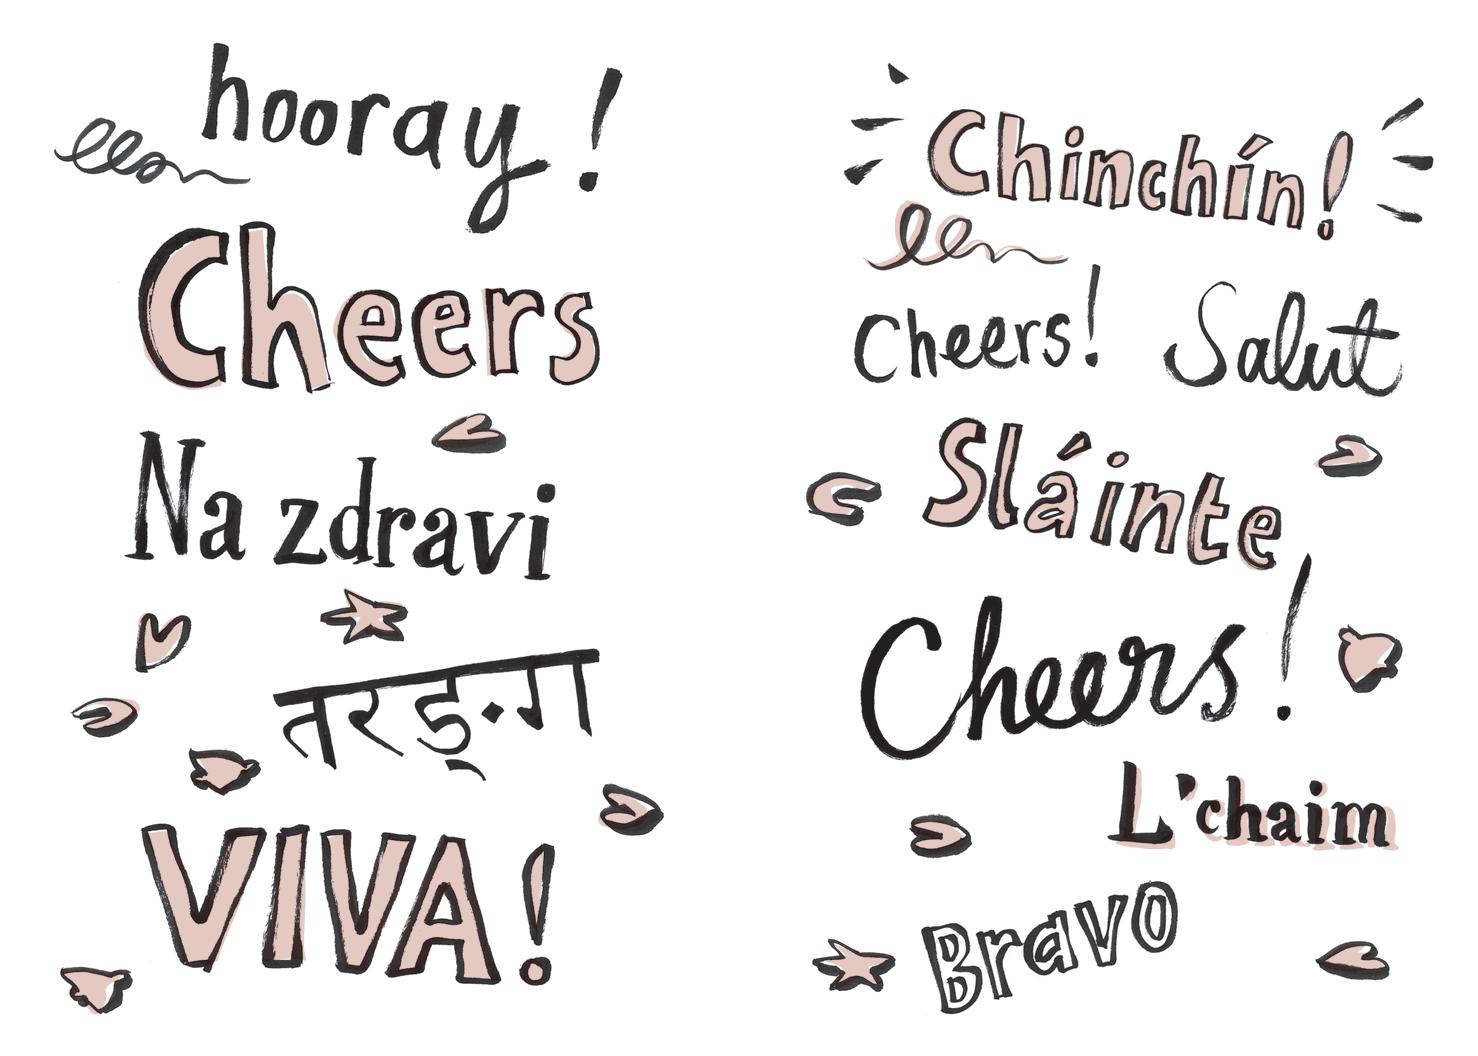 hooray!
Cheers
Na zdravi
तरङ्ग
VIVA!
Chinchín!
Cheers! Salut
Sláinte
Cheers!
L'chaim
Bravo